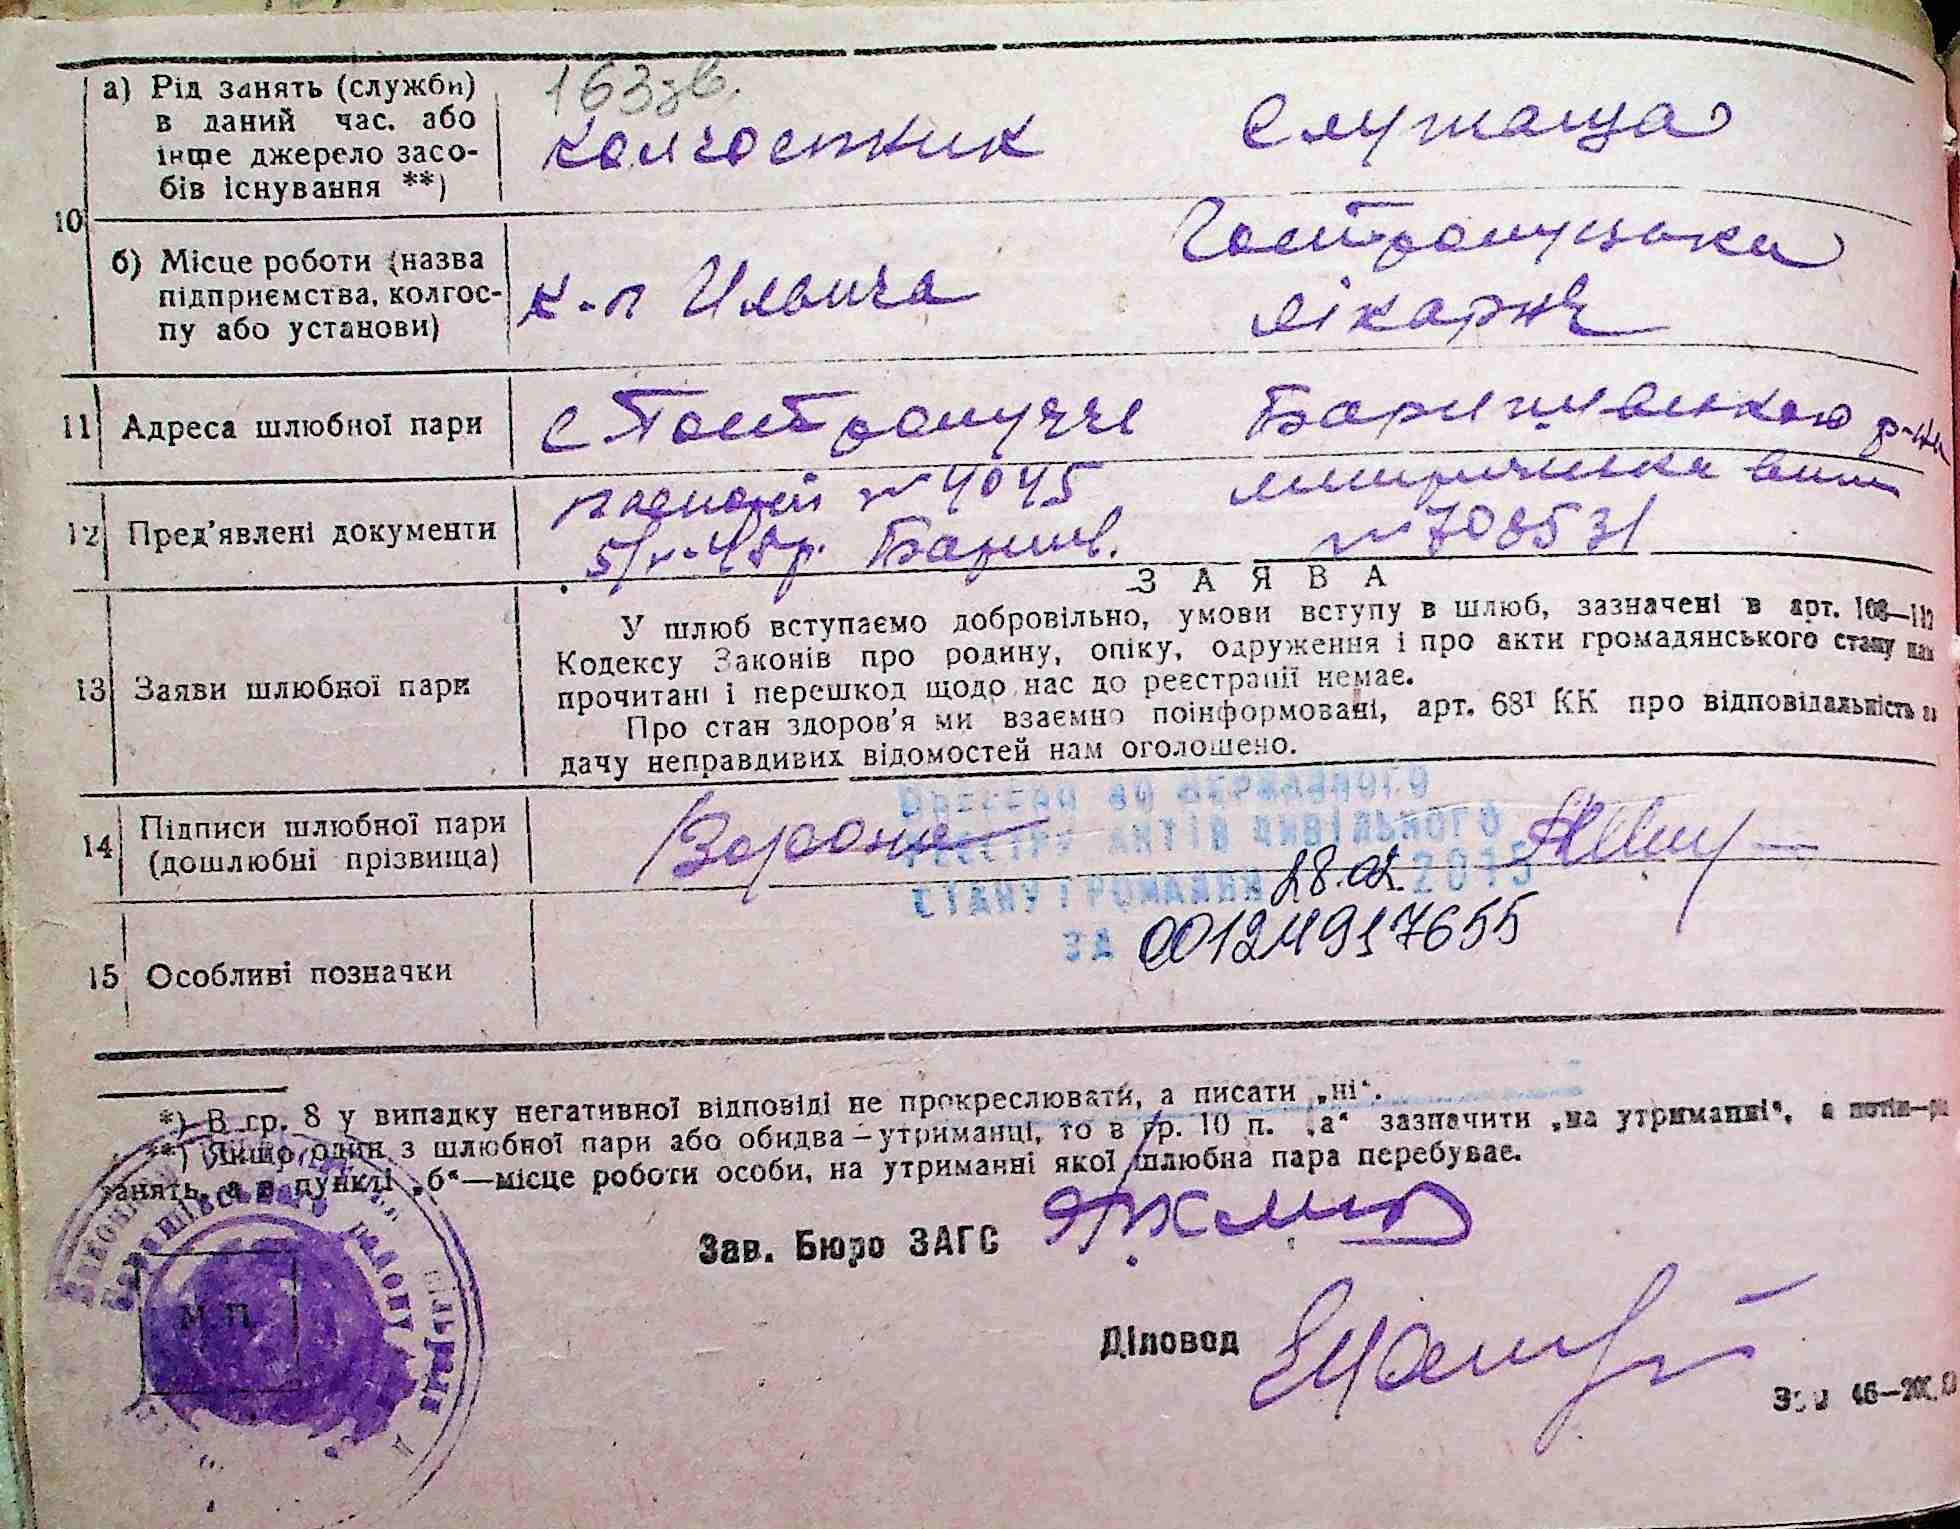 163зв.
а) Рід занять (служби) в даний час. або інше джерело засобів існування **)
колгоспник
Служаща
10
б) Місце роботи (назва підприємства, колгоспу або установи)
к-п Ильича
лікарня
11 Адреса шлюбної пари
с
12 Пред'явлені документи
№ 4045
№ 708531
З А Я В А
13 Заяви шлюбної пари
У шлюб вступаємо добровільно, умови вступу в шлюб, зазначені в арт.
Кодексу Законів про родину, опіку, одруження і про акти громадянського стану нам
прочитані і перешкод щодо нас до реєстрації немає.
Про стан здоров'я ми взаємно поінформовані, арт. 68¹ КК про відповідальність за
дачу неправдивих відомостей нам оголошено.
14 Підписи шлюбної пари (дошлюбні прізвища)
Внесено до державного
реєстру актів цивільного
стану громадян 28.02 2015
за 00124917655
15 Особливі позначки
*) В гр. 8 у випадку негативної відповіді не прокреслювати, а писати „ні“.
**) Якщо один з шлюбної пари або обидва — утриманці, то в гр. 10 п. „а“ зазначити „на утриманні“, а потім—рід
занять, а в пункті „б“—місце роботи особи, на утриманні якої шлюбна пара перебуває.
Зав. Бюро ЗАГС
М.П.
Діловод